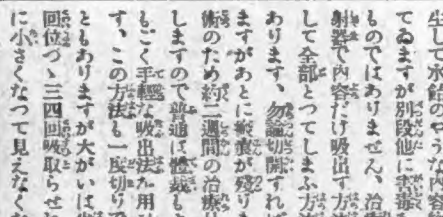 生して水飴のやうな内容
てゐますが別段他に害毒
ものではありません、治
射器で内容だけ吸出す方
して全部とつてしまふ方
あります、勿論切開すれば
ますがあとに瘢痕が残りま
術のため約二週間の治療
しますので普通は體裁も
もごく手輕な吸出法を用ひ
す、この方法も一度切りで
ともありますが大がいは
回位づゝ三四回吸取らせ
に小さくなつて見えなくな